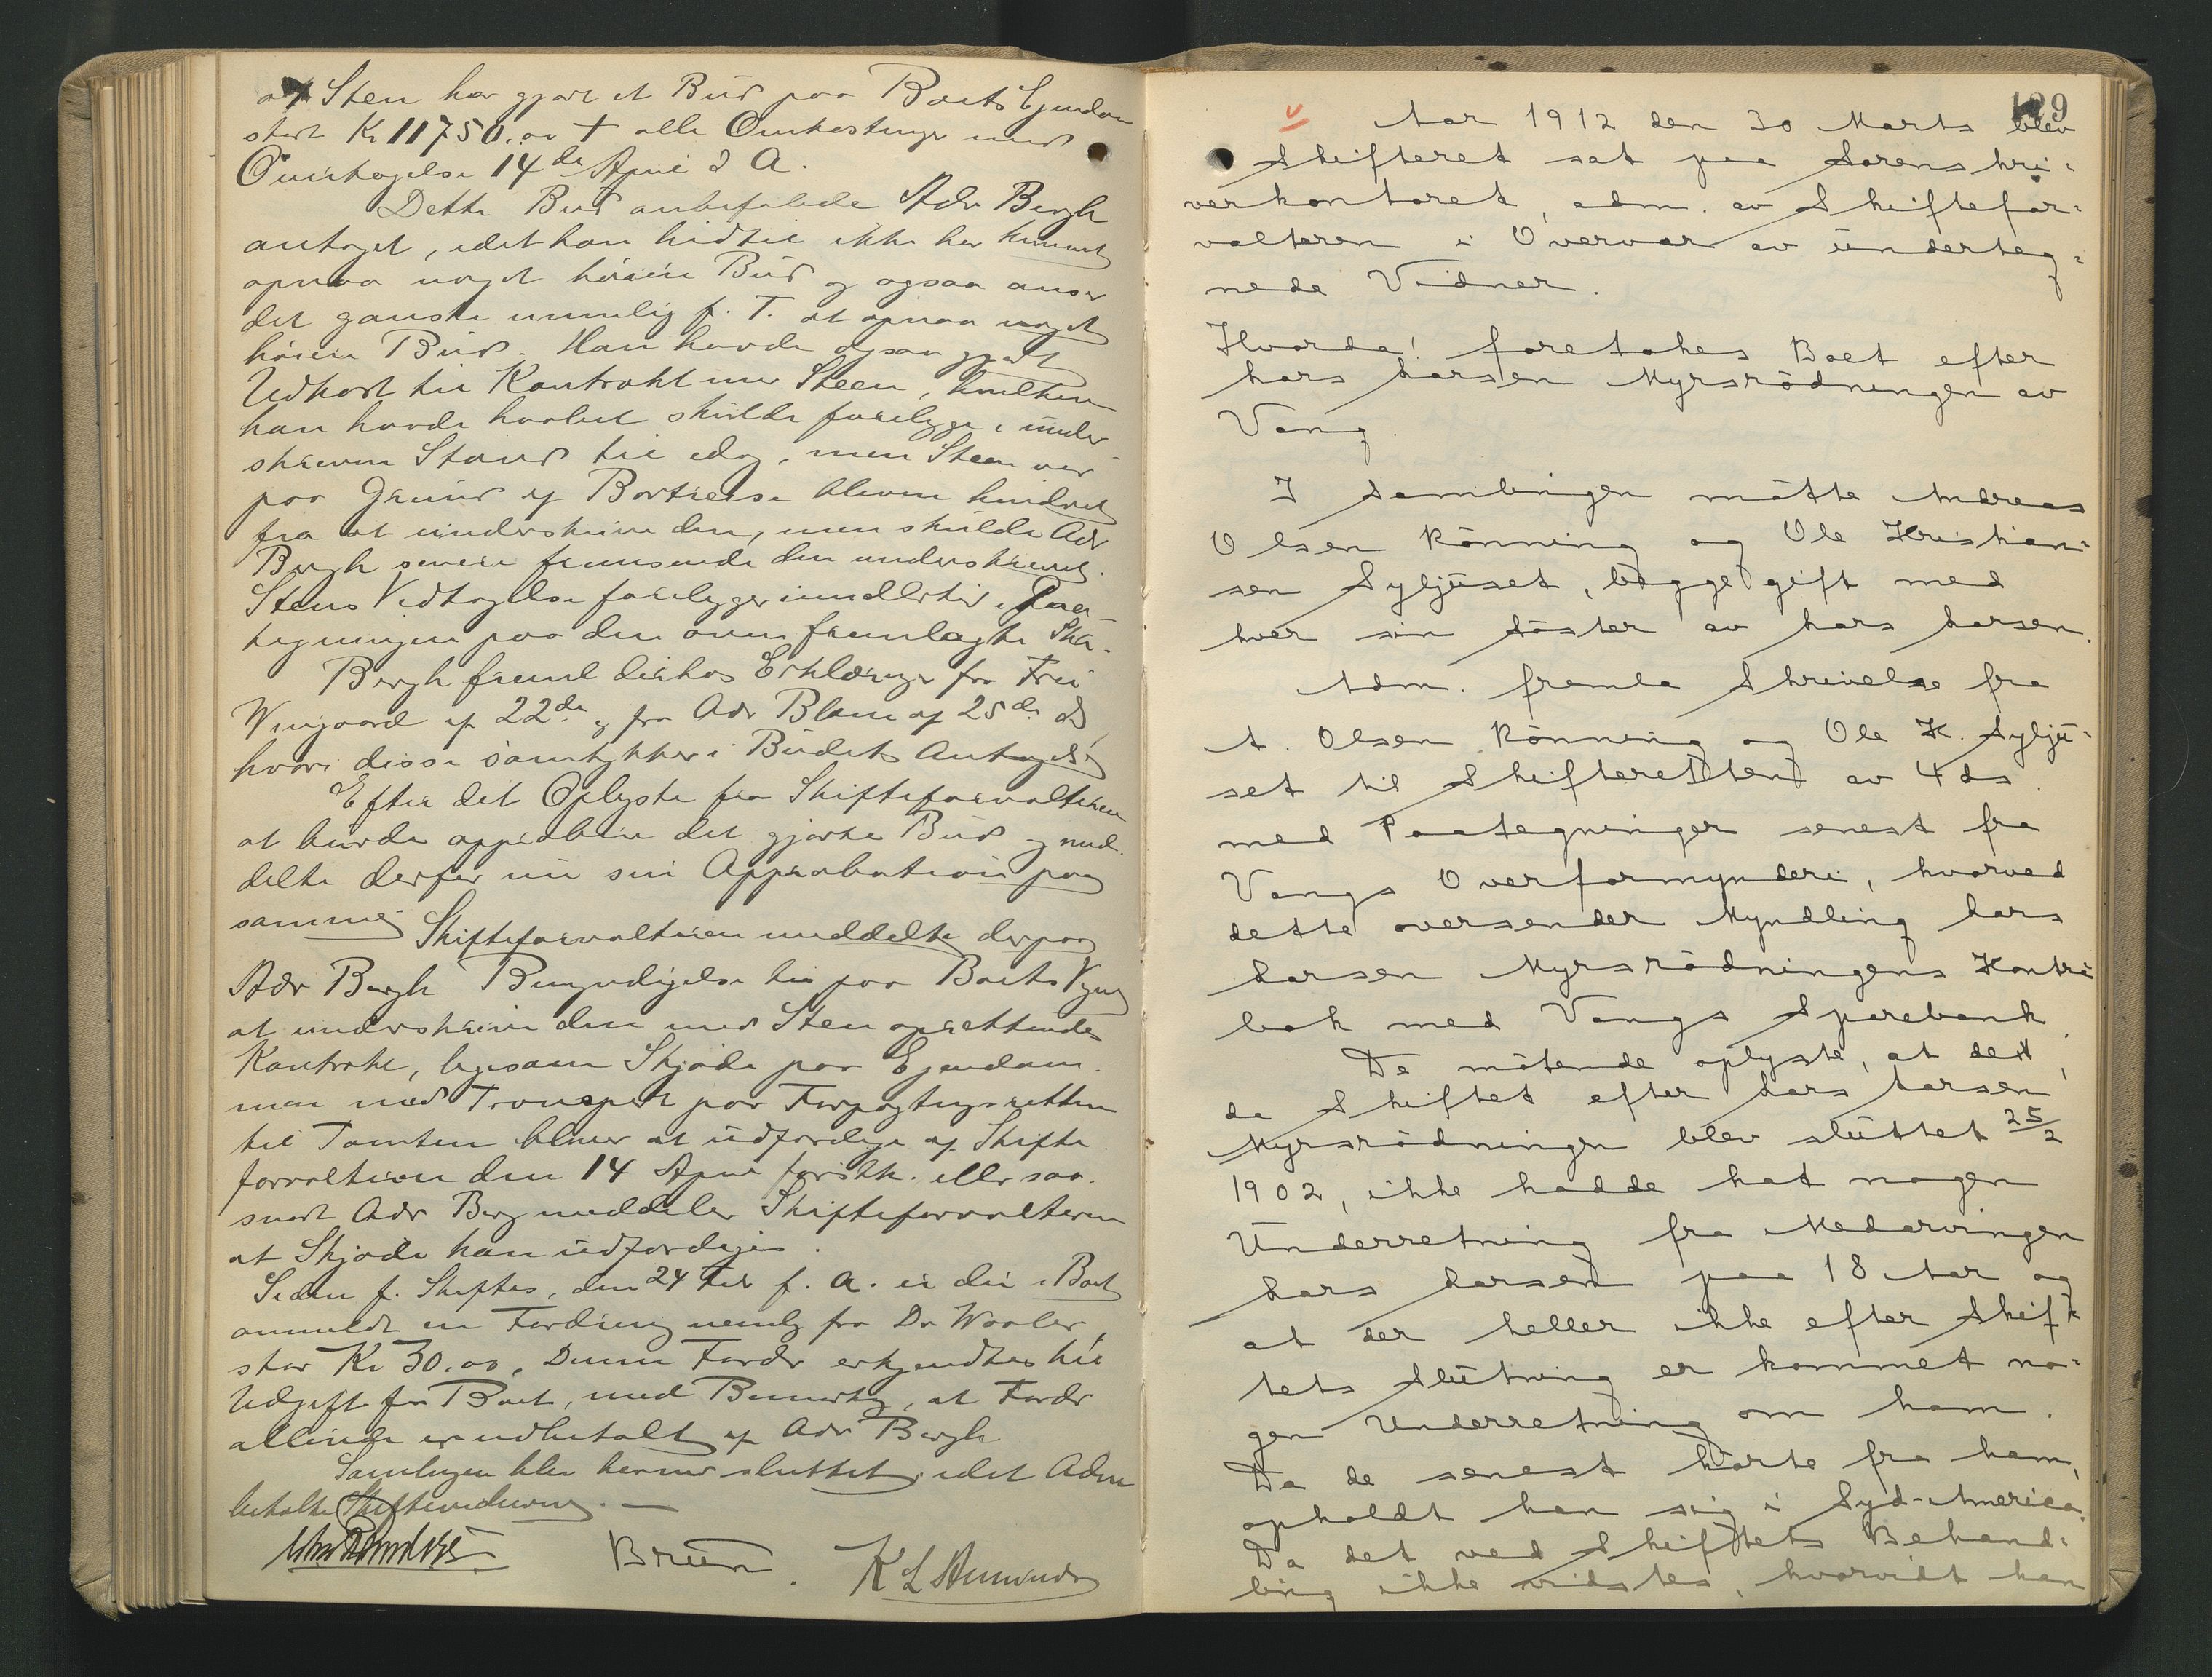 af Sten har gjort et Bud paa Boets Ejendom
stort Kr 11750.00 + alle Omkostninger med
Overtagelse 14de April d A.
Dette Bud anbefalede Adv Bergh
antaget, idet han hidtil ikke har kunnet
opnaa noget høiere Bud og ogsaa anser
det ganske umulig p. T. at opnaa noget
høiere Bud. Han havde ogsaa gjort
Udkast til Kontrakt med Steen, hvilken
han havde haabet skulde foreligge i under-
skreven Stand til idag, men Steen var
paa Grund af Bortreise bleven hindret
fra at underskrive den, men skulde Adv
Bergh senere fremsende den underskrevet.
Stens Vedtagelse foreligger imidlertid i Paa-
tegningen paa den oven fremlagte Skr.
Bergh freml derhos Erklæringer fra Frü
Wingaard af 22de og fra Adv Blom af 25de ds,
hvori disse samtykker i Budets Antagelse
Efter det Oplyste fra Skifteforvalteren
at burde approbere det gjorte Bud og med-
delte derfor nu sin Approbation paa
samme.
Skifteforvalteren meddelte derpaa
Adv Bergh Bemyndigelse til paa Boets Vegne
at underskrive den med Sten oprettende
Kontrakt, ligesom Skjøde paa Ejendom-
men med Transport paa Forpagtningsretten
til Tomten bliver at udfærdige af Skifte
forvalteren den 14 April førstk. eller saa-
snart Adv Berg meddeler Skifteforvalteren
at Skjøde kan udfærdiges.
Siden f. Skiftes, den 24 Feb f. A. er der i Boet
anmeldt en Fordring nemlig fra Dr Waaler,
stor Kr 30.00. Denne Fordr erkjendtes til
Udgift for Boet, med Bemerkn, at Fordr
allerede er udbetalt af Adv Bergh
Samlingen blev hermed sluttet, idet Adm
betalte Skiftevidnerne. —
Brun. K L Amunds
129
v Aar 1912 den 30 Marts blev
Skifteret sat paa Sorenskri-
verkontoret, adm. av Skiftefor-
valteren i Overvær av underteg-
nede Vidner.
Hvorda! foretakes Boet efter
Lars Larsen Myrsrødningen av
Vang.
I Samlingen møtte Andreas
Olsen Rønning og Ole Kristian-
sen Syljuset, begge gift med
hver sin Søster av Lars Larsen.
Adm. fremla Skrivelse fra
A. Olsen Rønning og Ole K. Sylju-
set til Skifteretten av 4 ds.
med Paategninger senest fra
Vangs Overformynderi, hvorved
dette oversender Myndling Lars
Larsen Myrsrødningens Kontra
bok med Vangs Sparebank.
De møtende oplyste, at det,
da Skiftet efter Lars Larsen
Myrsrødningen blev sluttet 25/2
1902, ikke hadde hat nogen
Underretning fra Medarvingen
Lars Larsen paa 18 Aar og
at der heller ikke efter Skif-
tets Slutning er kommet no-
gen Underretning om ham.
Da de senest hørte fra ham,
opholdt han sig i Syd-America.
Da det ved Skiftets Behand-
ling ikke vidstes, hvorvidt han